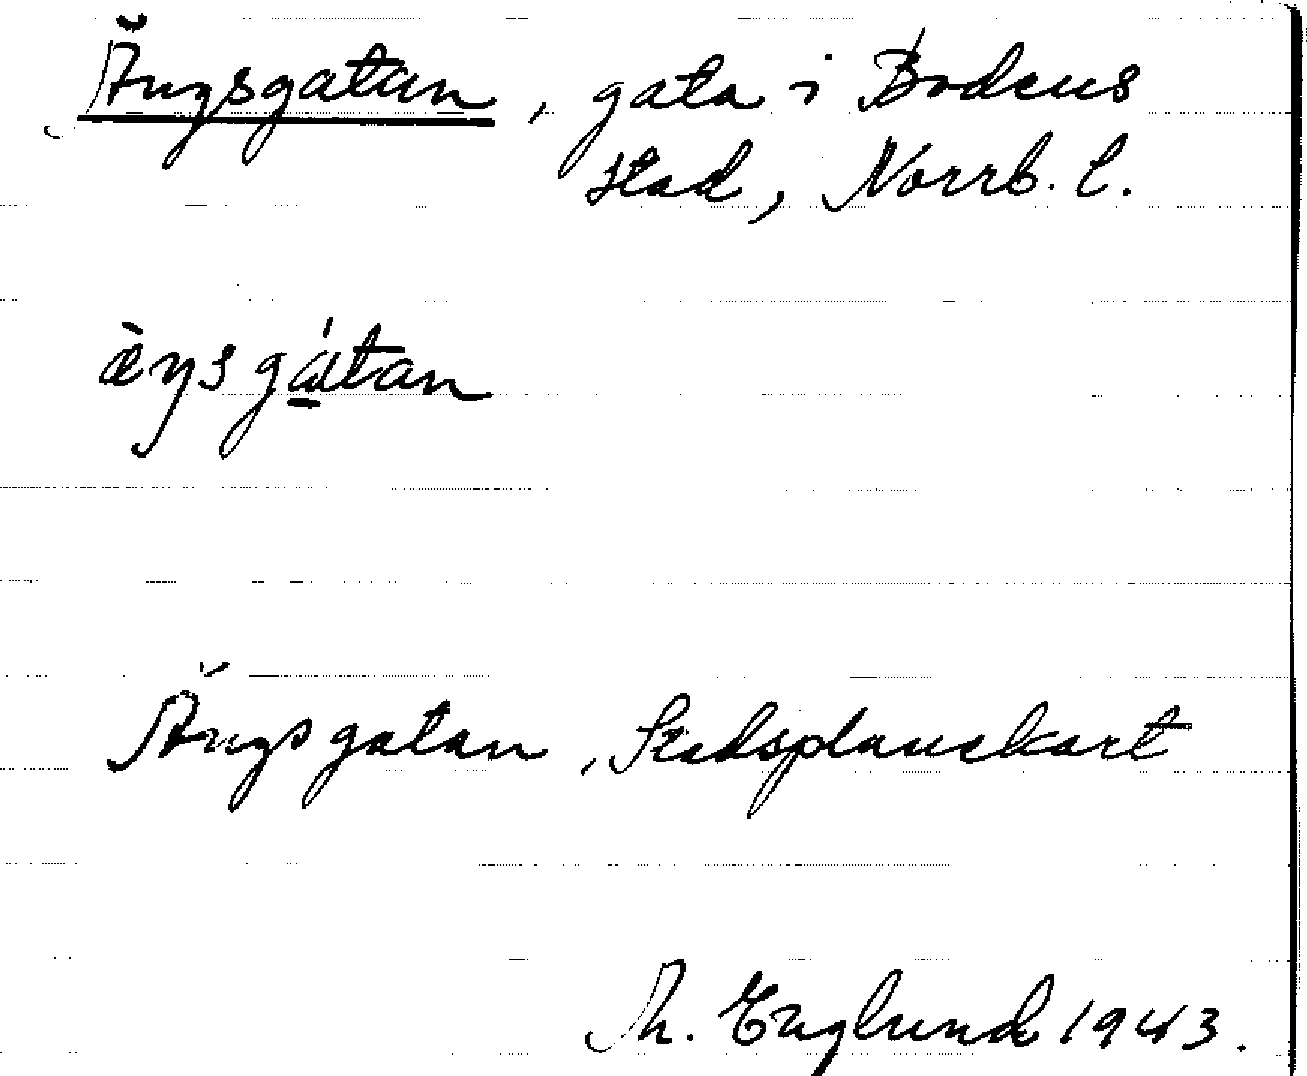 Ängsgatan, gata i Bodens
stad, Norrb. l.
æ̀ŋsgátan
Ängsgatan, Stadsplanekart
Th. Englund 1943.